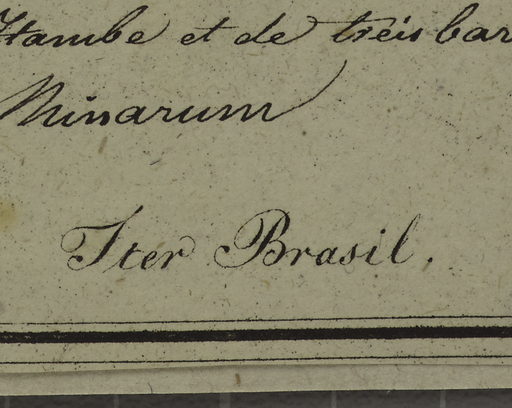 Itambe et de treis bar
Minarum
Iter Brasil.